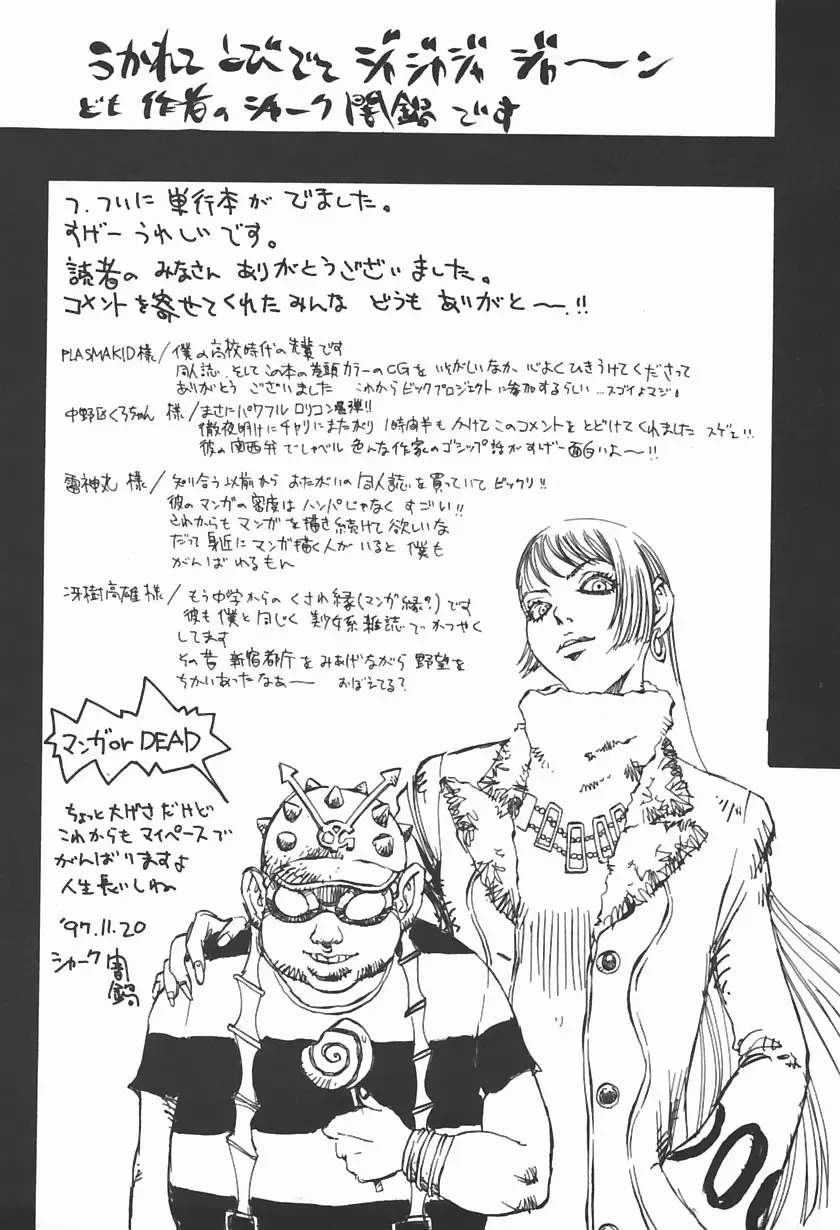 うかれて とびでて ジャジャジャ ジャ〜ン
ども 作者の シャーク 闇鍋 です
フ、ついに 単行本が でました。
すげー うれしい です。
読者の みなさん ありがとうございました。
コメントを寄せてくれた みんな どうも ありがと〜!!
PLASMAKID様/僕の高校時代の先輩です
同人誌、そしてこの本の巻頭カラーのCGを いそがしいなか、心よくひきうけてくださって
ありがとう ございました これから ビックプロジェクトに参加するらしい…スゴイよマジ。
中野区くろちゃん 様/まさに パワフル ロリコン爆弾!!
徹夜明けに チャリにまたがり 1時間半も かけて このコメントを とどけて くれました スゲェ!!
彼の 関西弁で しゃべル 色んな作家との ゴシップ話が すげー面白いよ〜!!
雷神丸 様/知り合う以前から おたがいの 同人誌を 買っていて ビックリ!!
彼の マンガの 密度は ハンパじゃなく すごい!!
これからも マンガ を描き続けて 欲しいな
だって 身近に マンガ描く人が いると 僕も
がんばれるもん
冴樹高雄様/もう中学からの くされ縁(マンガ縁?)です
彼も 僕と同じく 美少女系雑誌で かつやく
してます
その昔 新宿都庁を みあげながら 野望を
ちかいあったなぁ〜 おぼえてる?
マンガ or DEAD
ちょっと 大げさだけど
これからも マイペースで
がんばりますよ
人生 長いしね
'97.11.20
シャーク 闇鍋